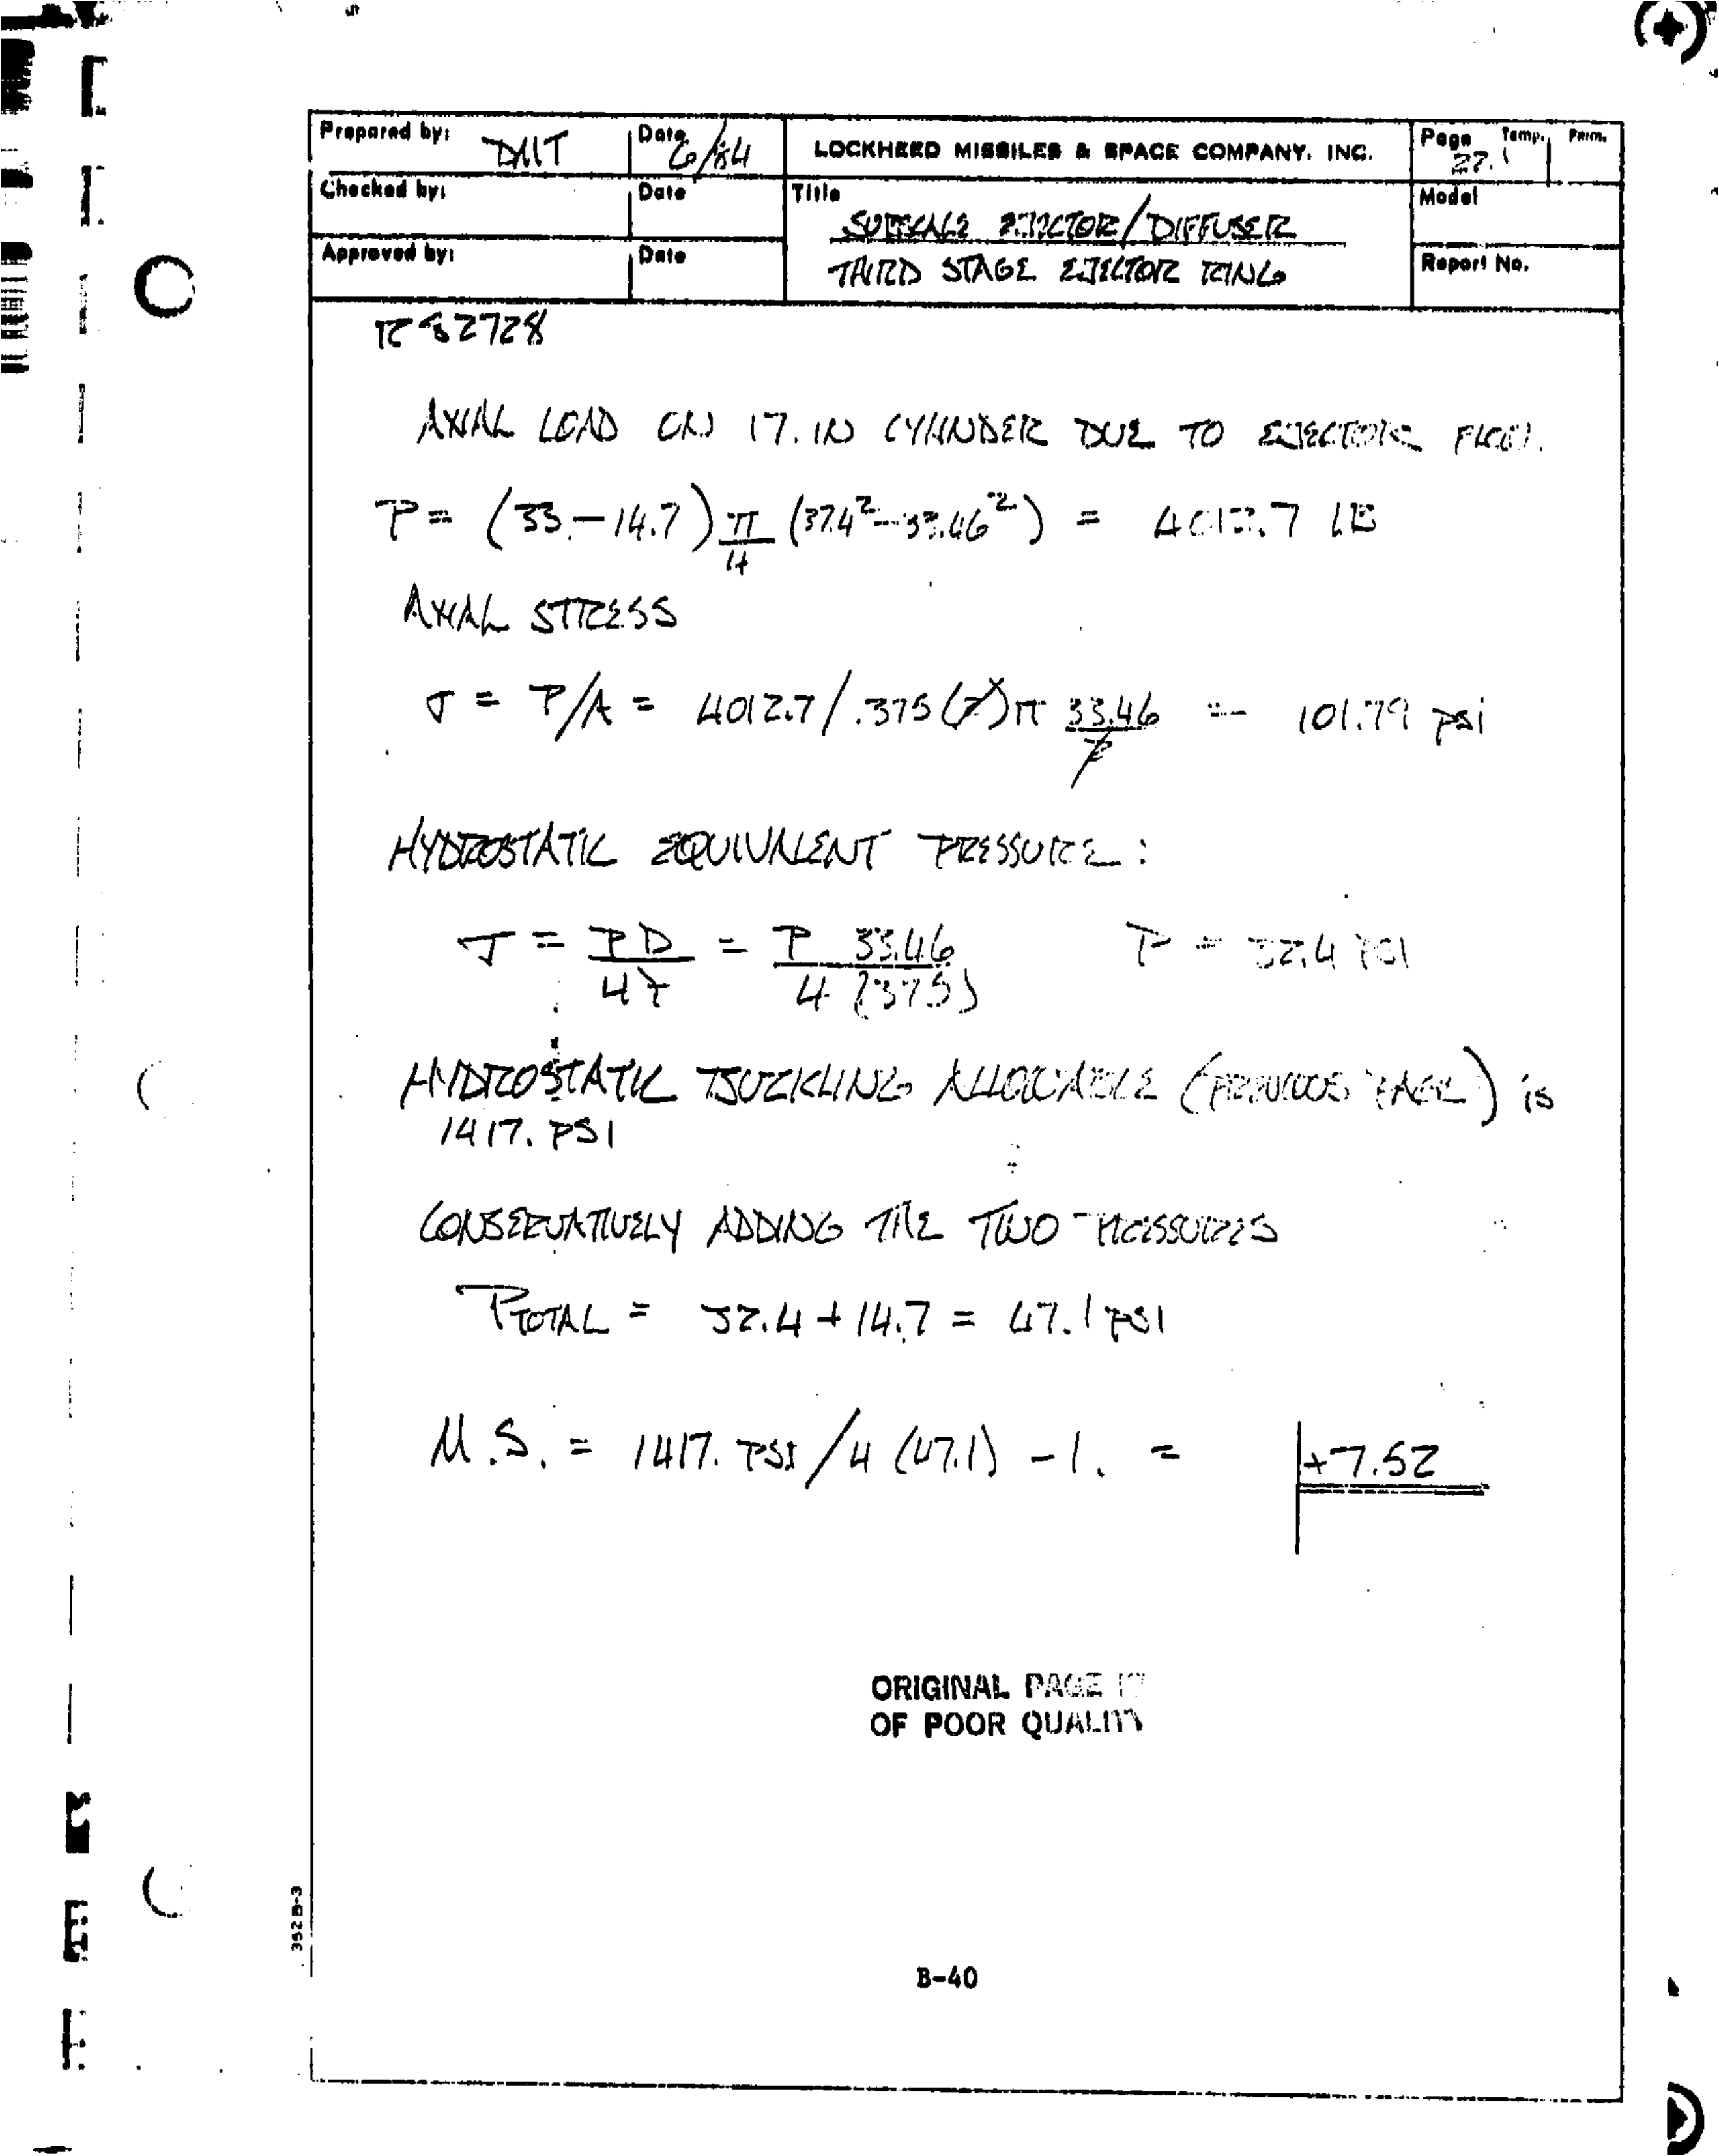 Prepared by: DMT Date 6/84 LOCKHEED MISSILES & SPACE COMPANY, INC. Page Temp. Perm.
27.1
Checked by: Date Title Model
SUBSCALE EJECTOR/DIFFUSER
Approved by: Date THIRD STAGE EJECTOR RING Report No.
R82728
AXIAL LOAD ON 17. IN CYLINDER DUE TO EJECTOR FLOW.
P = (33.-14.7) π/4 (37.4²-33.46²) = 4012.7 LB
AXIAL STRESS
σ = P/A = 4012.7/.375(2)π 33.46/2 = 101.79 psi
HYDROSTATIC EQUIVALENT PRESSURE:
σ = PD/4t = P 33.46/4(.375) P = 32.4 PSI
HYDROSTATIC BUCKLING ALLOWABLE (PREVIOUS PAGE) is
1417. PSI
CONSERVATIVELY ADDING THE TWO PRESSURES
PTOTAL = 32.4 + 14.7 = 47.1 PSI
M.S. = 1417. PSI/4 (47.1) -1. = +7.52
ORIGINAL PAGE IS
OF POOR QUALITY
352 B-3
B-40